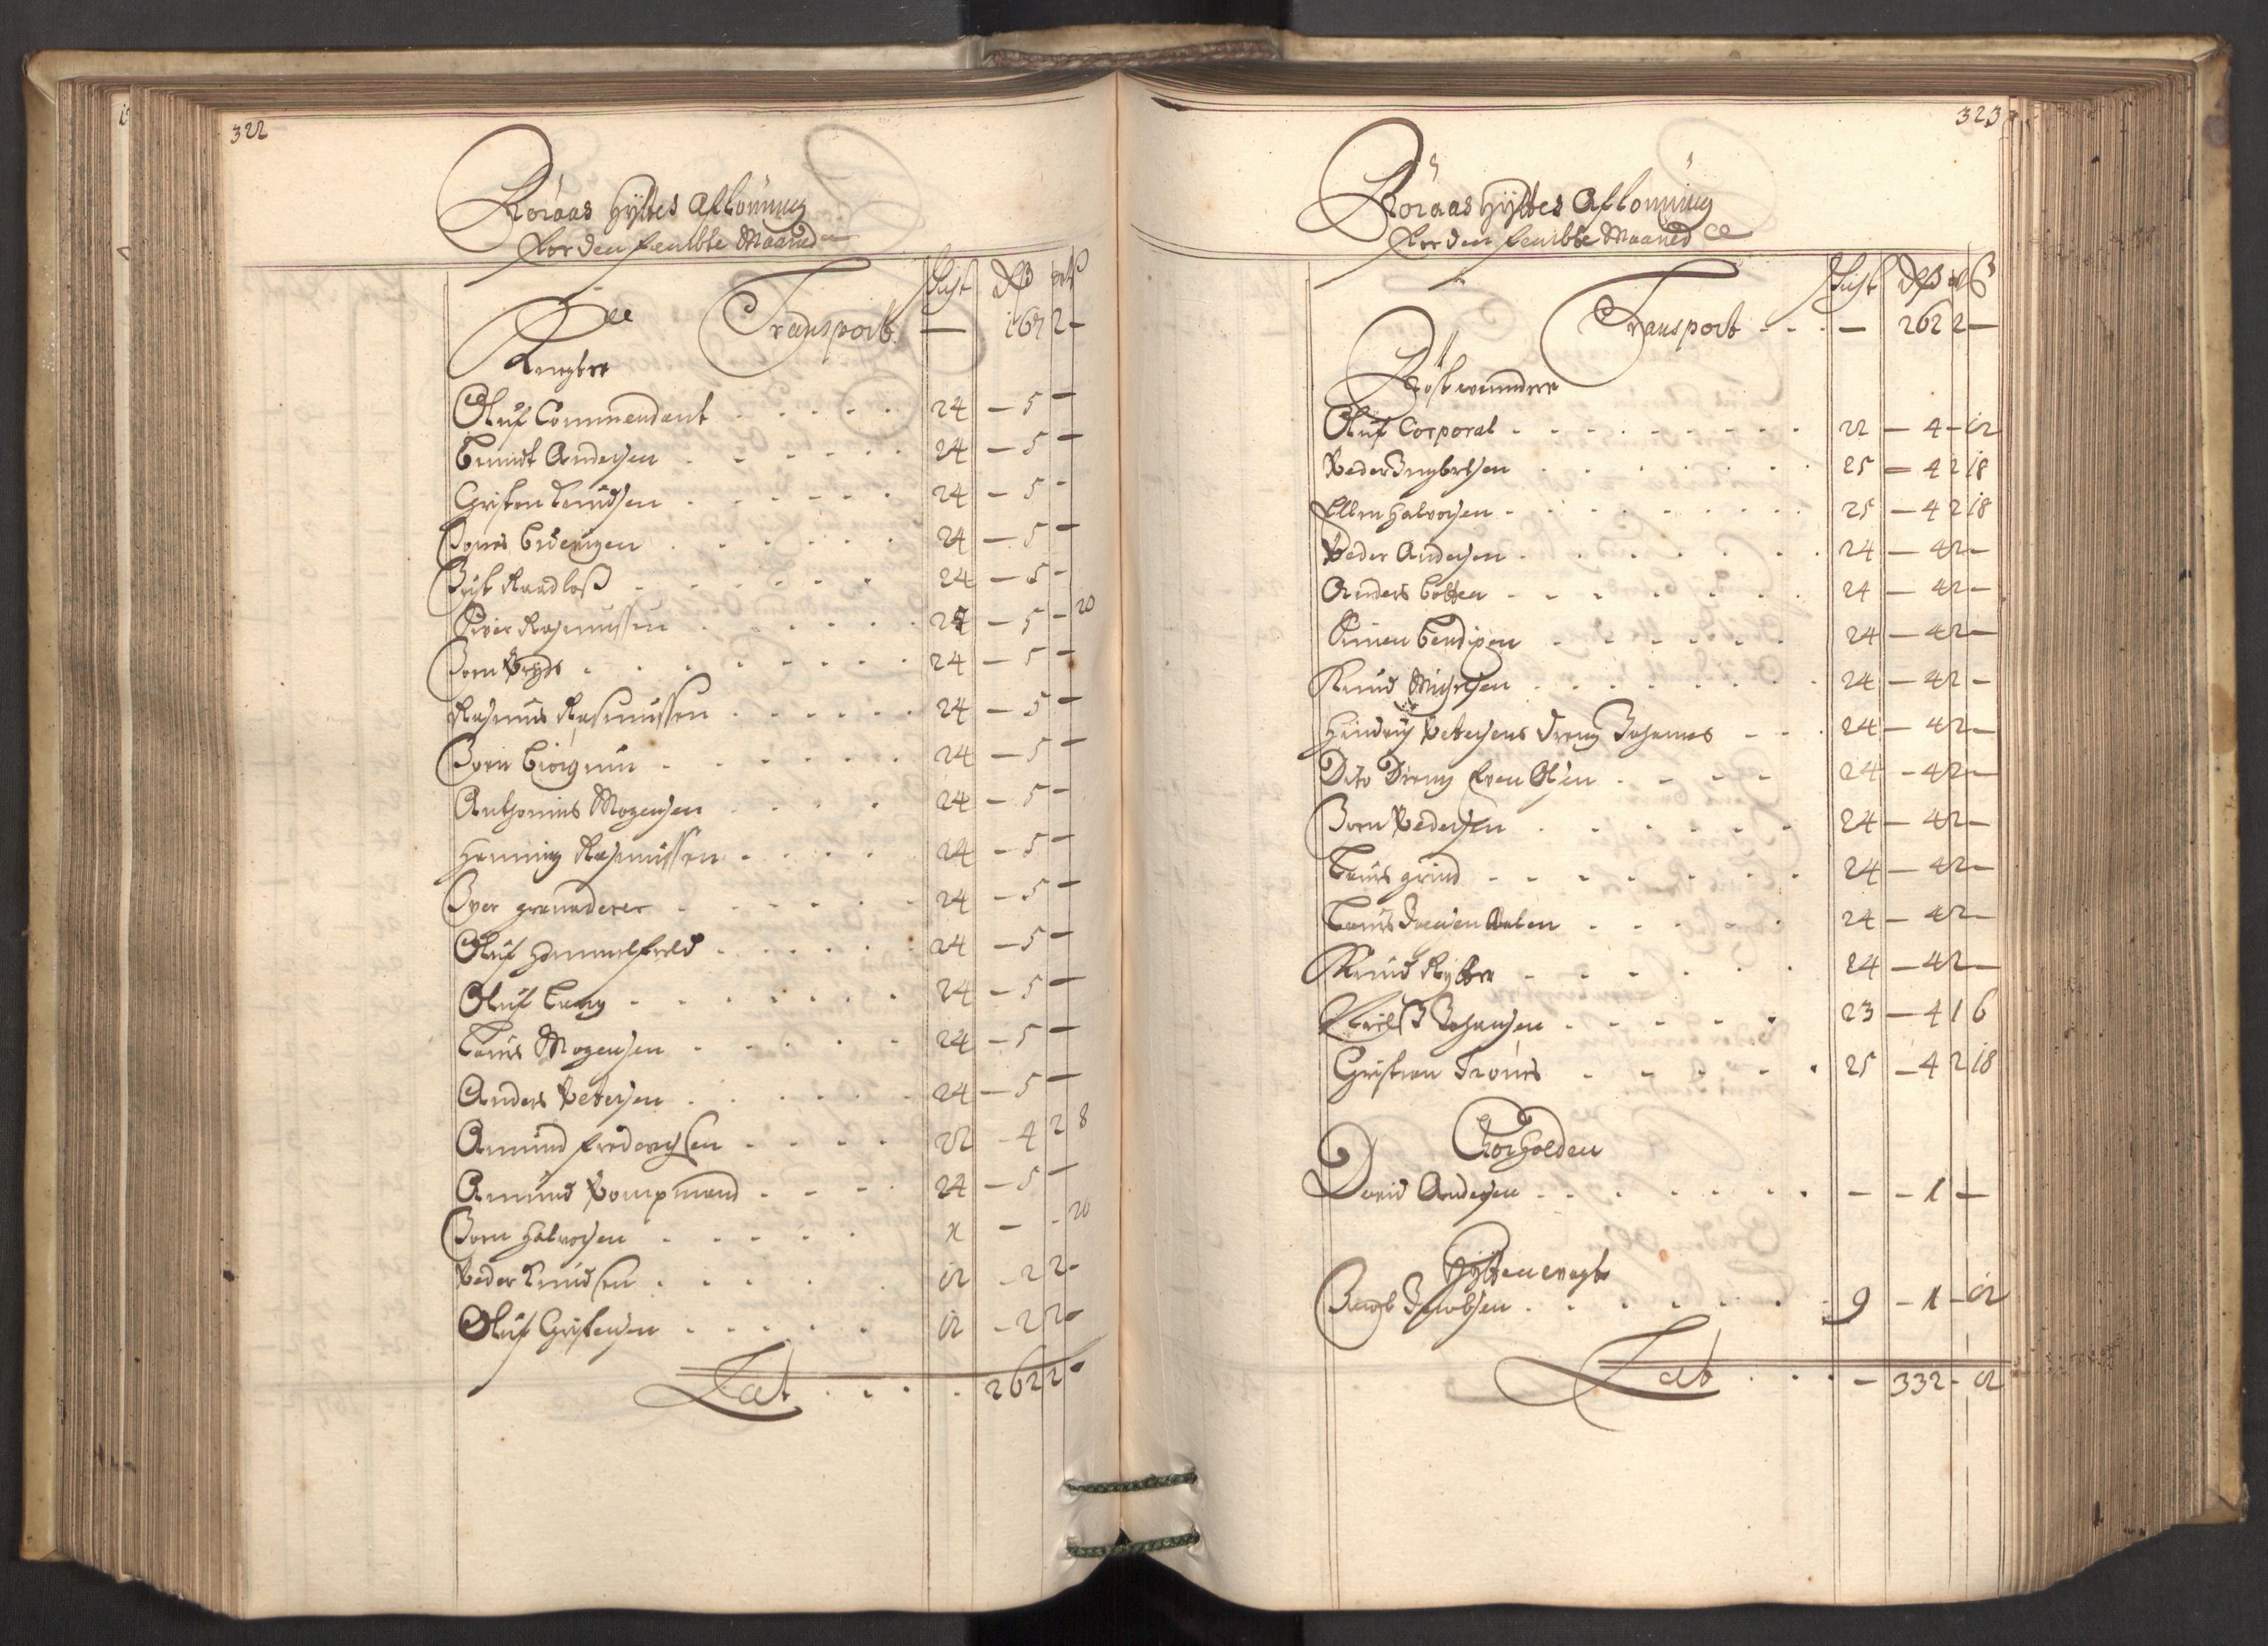 322
Röraas Hyttes Aflönning
For den femtte Maaned
Skift Rdr ort ß
Transport — 167 2 —
Knegter
Oluf Commendant 24 — 5 —
Bendt Andersen 24 — 5 —
Christen Knudsen 24 — 5 —
Joens 24 — 5 —
Raadløß 24 — 5 —
Siver Rasmussen 25 — 5 — 20
Joen Bryde 24 — 5 —
Rasmus Rasmussen 24 — 5 —
Joen Biörgum 24 — 5 —
Anthonius Mogensen 24 — 5 —
Henning Rasmussen 24 — 5 —
Iver granaderer 24 — 5 —
Oluf Hommelfield 24 — 5 —
Oluf Lang 24 — 5 —
Lars Mogensen 24 — 5 —
Anders Petersen 24 — 5 —
Amund Frederichsen 22 — 4 2 8
Amund Pompmand 24 — 5 —
Joen Halvorsen 1 — — 20
Peder Knudsen 12 — 2 2 —
Oluf Christensen 12 — 2 2 —
Lat 262 2 —
323
Röraas Hyttes Aflönning
For den femtte Maaned
Skift Rdr ort ß
Transport — 262 2 —
Röstevendere
Oluf Corporal 22 — 4 — 12
Peder Ingbretsen 25 — 4 2 18
Ellen Halvorsen 25 — 4 2 18
Peder Andersen 24 — 4 2 —
Anders Cotten 24 — 4 2 —
Simen Bendixen 24 — 4 2 —
Knud Michelsen 24 — 4 2 —
Hindrich Petersens Dreng Johannes 24 — 4 2 —
Dito Dreng Even Olsen 24 — 4 2 —
Joen Pedersen 24 — 4 2 —
Lars grind 24 — 4 2 —
Lars 24 — 4 2 —
Knud Rytter 24 — 4 2 —
Johansen 23 — 4 1 6
Christian Trönes 25 — 4 2 18
Forholden
David Andersen — — 1 —
Hyttevegt
Jacob Jacobsen 9 — 1 — 12
Lat — 332 — 12